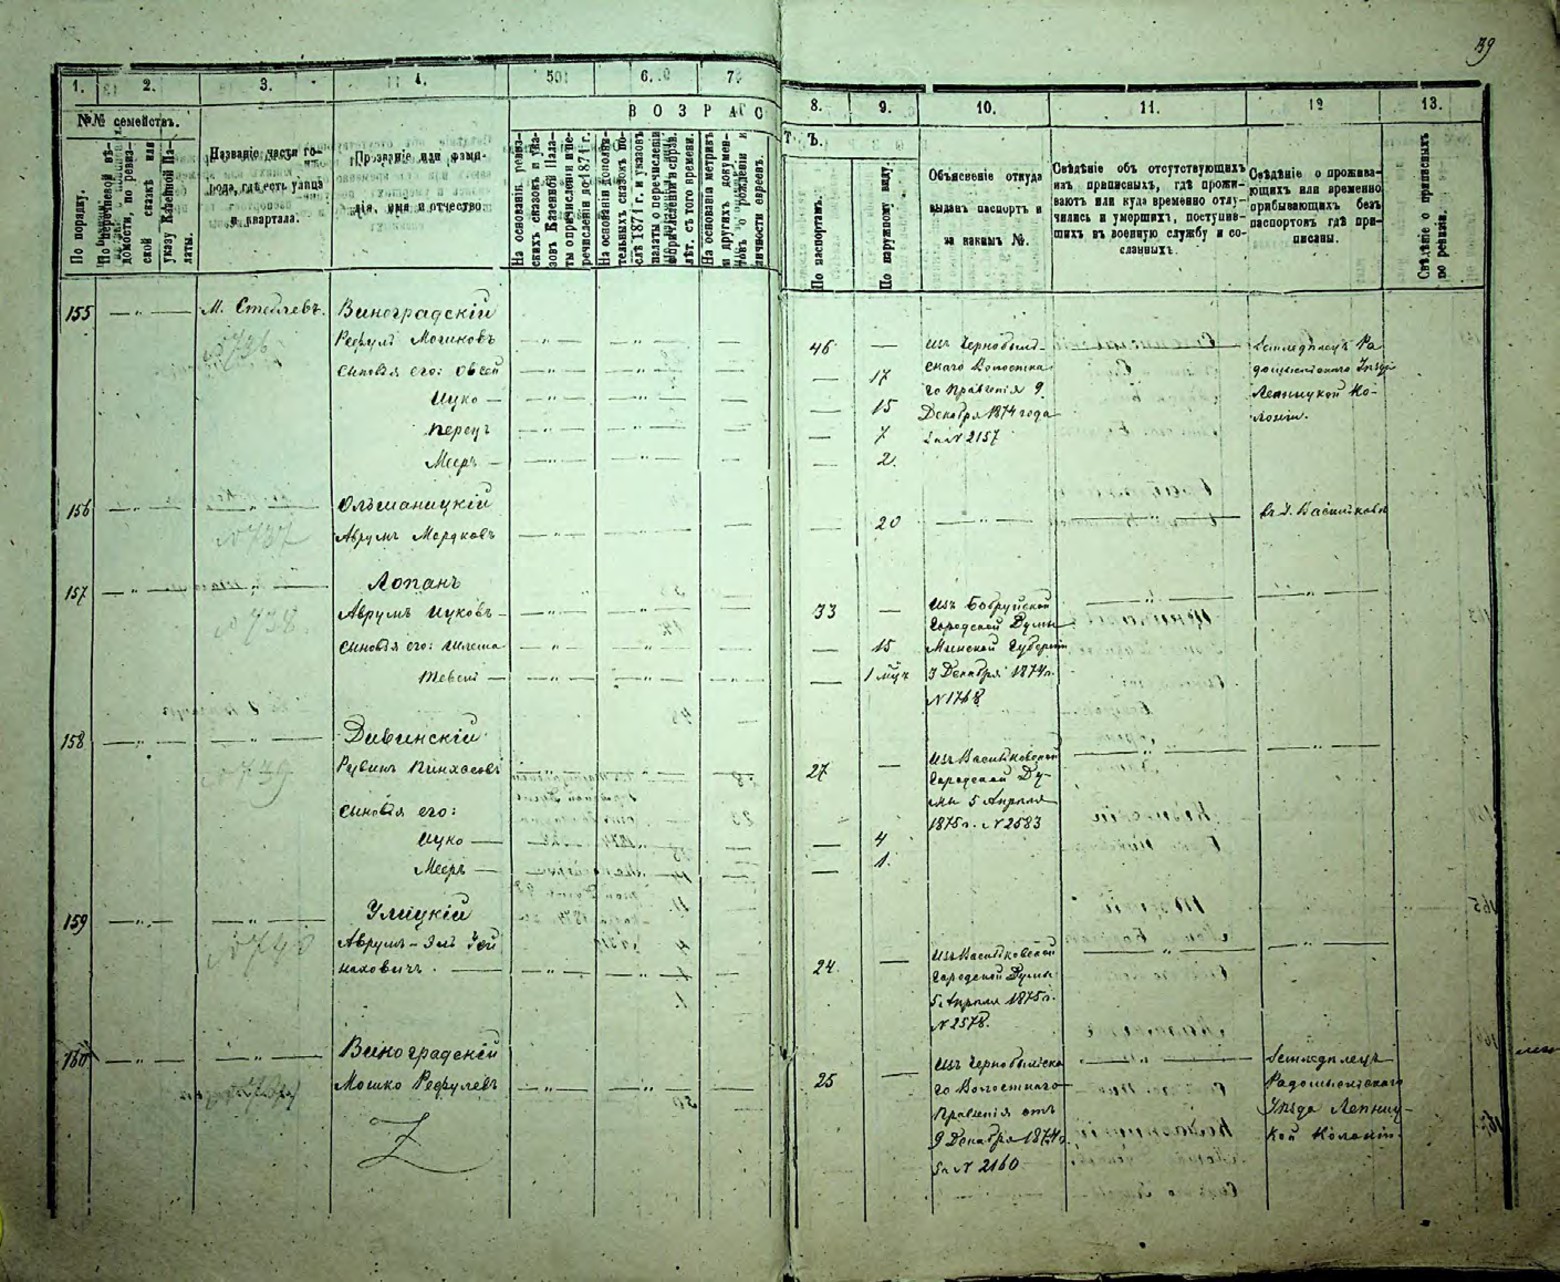 39
1. 2. 3. 4. 5 6. 7 8. 9. 10. 11. 12 13.
ВОЗРАСТЪ.
№№ семействъ.
По порядку.
По перечневой вѣдомости, по ревизской сказкѣ или указу Казенной Палаты.
Названіе части города, гдѣ есть улица и квартала.
Прозваніе или фамилія, имя и отчество.
На основаніи ревизскихъ сказокъ и указовъ Казенной Палаты о причисленіи и перечисленіи до 1871 г.
На основаніи дополнительныхъ сказокъ послѣ 1871 г. и указовъ палаты о перечисленіи и причисленіи и справ. лѣт. съ того времени.
На основаніи метрикъ и другихъ документовъ о рожденіи и личности евреевъ.
По паспортамъ.
По наружному виду.
Объясненіе откуда выданъ паспортъ и за какимъ №.
Свѣдѣніе объ отсутствующихъ изъ приписныхъ, гдѣ проживаютъ или куда временно отлучились и умершихъ, поступившихъ въ военную службу и сосланныхъ.
Свѣдѣніе о проживающихъ или временно прибывающихъ безъ паспортовъ гдѣ приписаны.
Свѣдѣніе о приписныхъ по ревизіи.
155 — " — М. Стеблевъ. Виноградскій
№736
Рефулъ Мошковъ — " — — " — — 46 — Изъ Чернобыльскаго Волостнаго Правленія 9 Декабря 1874 года за № 2157
Земледѣлецъ Радомысльскаго Уѣзда Лепницкой Колоніи.
Сыновья его: Овсей — " — — " — — — 17
Ицко — — " — — " — — — 15
Перецъ — " — — " — — — 7
Мееръ — — " — — " — — — 2.
156 — " — — " — Ольшаницкій
№737
Аврумъ Мордковъ — " — — " — — — 20 — " — — " — въ г. Васильковѣ
157 — " — — " — Лопанъ
№738
Аврумъ Ицковъ — — " — — " — — 33 — Изъ Бобруйской
Городской Думы
Сыновья его: — " — — " — — — 15 Минской Губерніи
— — " — — " — — " — — 1 3 Декабря 1874 г.
№ 1768
158 — " — — " — Дивинскій
№739
Рувинъ Пинхасовъ — " — — " — — 27 — Изъ Васильковской
Городской Думы 5 Апрѣля
Сыновья его:
1875 г. № 2583
Ицко — — 4
Мееръ — — 1.
159 — " — — " — Улицкій
№740
Аврумъ-
наховичъ. — — " — — " — — 24. — Изъ Васильковской
Городской Думы
5 Апрѣля 1875 г.
№ 2578.
160 — " — — " — Виноградскій
Мошко Рефулевъ — " — — " — — 25 — Изъ Чернобыльскаго Волостнаго
Правленія отъ
9 Декабря 1874 г.
за № 2160
Земледѣлецъ
Радомысльскаго
Уѣзда Лепницкой Колоніи.